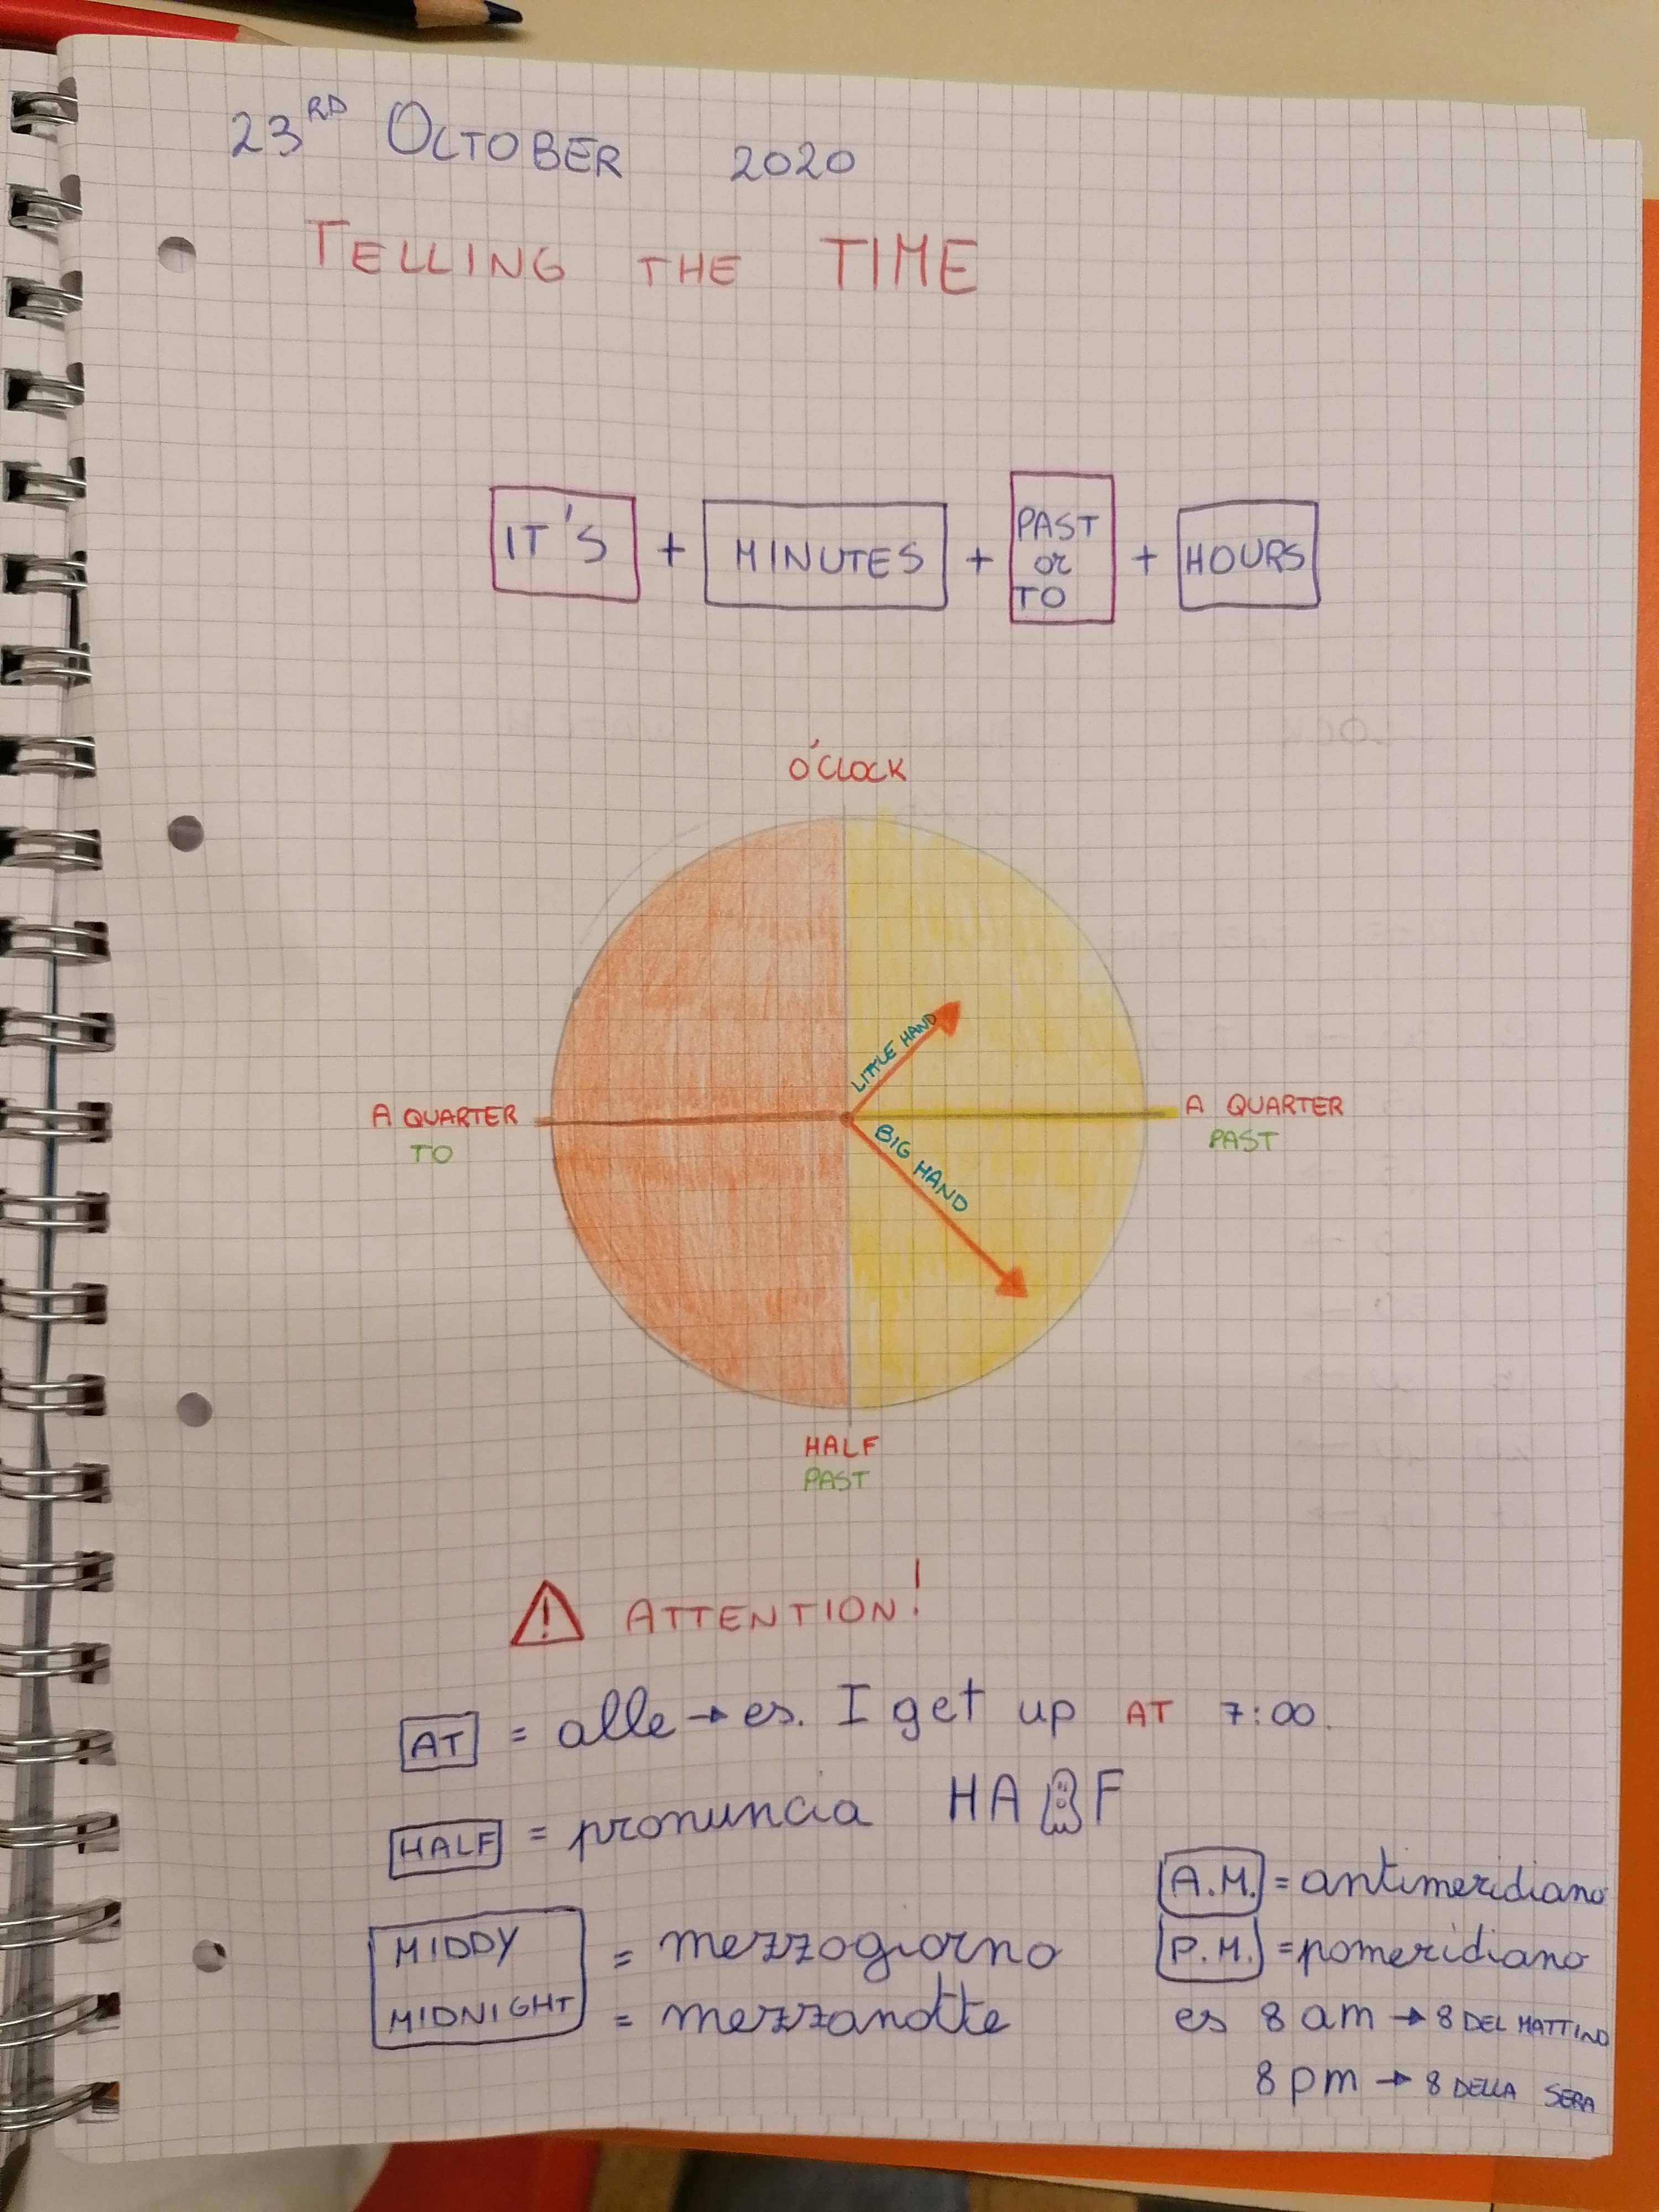 23RD OCTOBER 2020
TELLING THE TIME
IT'S + MINUTES + PAST or TO + HOURS
O'CLOCK
LITTLE HAND
A QUARTER TO
A QUARTER PAST
BIG HAND
HALF
PAST
ATTENTION!
AT = alle → es. I get up AT 7:00.
HALF = pronuncia HALF
A.M. = antimeridiano
MIDDY = mezzogiorno
P.M. = pomeridiano
MIDNIGHT = mezzanotte
es 8 am → 8 DEL MATTINO
8 pm → 8 DELLA SERA